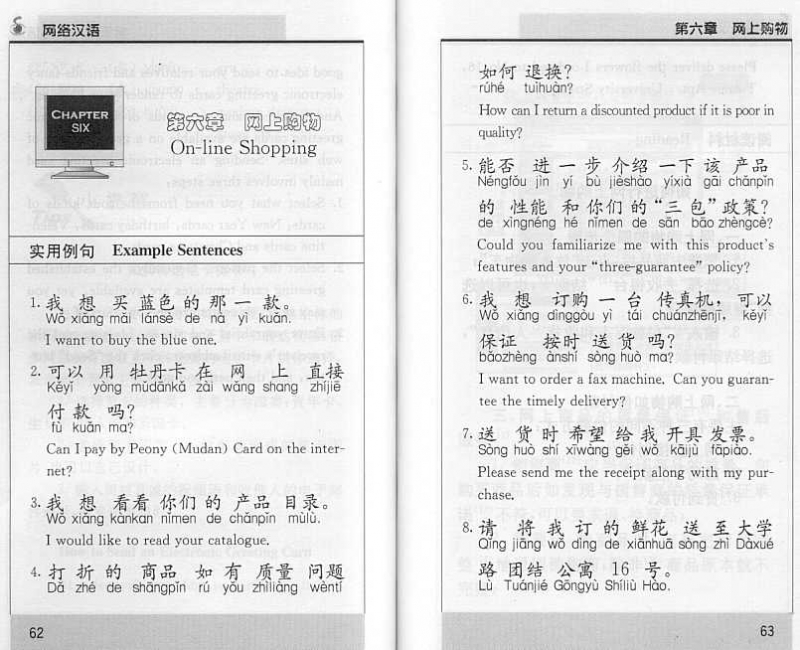 网络汉语
CHAPTER
SIX
第六章 网上购物
On-line Shopping
实用例句 Example Sentences
1. 我 想 买 蓝色 的 那 一 款。
Wǒ xiǎng mǎi lánsè de nà yì kuǎn.
I want to buy the blue one.
2. 可以 用 牡丹卡 在 网 上 直接
Kěyǐ yòng mǔdānkǎ zài wǎng shang zhíjiē
付 款 吗?
fù kuǎn ma?
Can I pay by Peony (Mudan) Card on the inter-
net?
3. 我 想 看看 你们 的 产品 目录。
Wǒ xiǎng kànkan nǐmen de chǎnpǐn mùlù.
I would like to read your catalogue.
4. 打 折 的 商品 如 有 质量 问题
Dǎ zhé de shāngpǐn rú yǒu zhìliàng wèntí
62
第六章 网上购物
如何 退换?
rúhé tuìhuàn?
How can I return a discounted product if it is poor in
quality?
5. 能否 进 一 步 介绍 一下 该 产品
Néngfǒu jìn yí bù jièshào yíxià gāi chǎnpǐn
的 性能 和 你们 的 “三 包” 政策?
de xìngnéng hé nǐmen de sān bāo zhèngcè?
Could you familiarize me with this product's
features and your “three-guarantee” policy?
6. 我 想 订购 一 台 传真机, 可以
Wǒ xiǎng dìnggòu yì tái chuánzhēnjī, kěyǐ
保证 按时 送 货 吗?
bǎozhèng ànshí sòng huò ma?
I want to order a fax machine. Can you guaran-
tee the timely delivery?
7. 送 货 时 希望 给 我 开具 发票。
Sòng huò shí xīwàng gěi wǒ kāijù fāpiào.
Please send me the receipt along with my pur-
chase.
8. 请 将 我 订 的 鲜花 送 至 大学
Qǐng jiāng wǒ dìng de xiānhuā sòng zhì Dàxué
路 团结 公寓 16 号。
Lù Tuánjié Gōngyù Shíliù Hào.
63